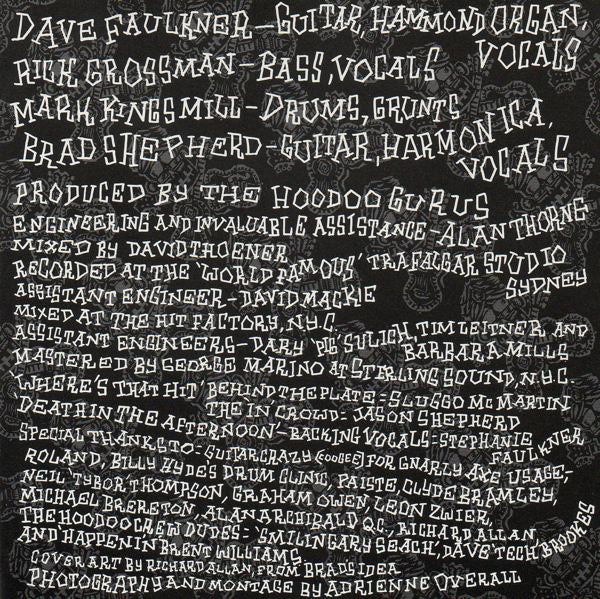 DAVE FAULKNER—GUITAR, HAMMOND ORGAN,
VOCALS
RICK GROSSMAN—BASS, VOCALS
MARK KINGSMILL—DRUMS, GRUNTS
BRAD SHEPHERD—GUITAR, HARMONICA,
VOCALS
PRODUCED BY THE HOODOO GURUS
ENGINEERING AND INVALUABLE ASSISTANCE-ALAN THORNE
MIXED BY DAVID THOENER
RECORDED AT THE 'WORLD FAMOUS' TRAFALGAR STUDIO
SYDNEY
ASSISTANT ENGINEER-DAVID MACKIE
MIXED AT THE HIT FACTORY, N.Y.C.
ASSISTANT ENGINEERS-DARY 'PIG' SULICH, TIM LEITNER AND
BARBARA MILLS
MASTERED BY GEORGE MARINO AT STERLING SOUND, N.Y.C.
'WHERE'S THAT HIT' BEHIND THE PLATE = SLUGGO McMARTIN
THE IN CROWD = JASON SHEPHERD
'DEATH IN THE AFTERNOON'—BACKING VOCALS: STEPHANIE
FAULKNER
SPECIAL THANKS TO-GUITAR CRAZY (COOGEE) FOR GNARLY AXE USAGE;
ROLAND, BILLY HYDE'S DRUM CLINIC, PAISTE, CLYDE BRAMLEY,
NEIL TYBOR THOMPSON, GRAHAM OWEN, LEON ZWIER,
MICHAEL BRERETON, ALAN ARCHIBALD Q.C., RICHARD ALLAN
THE HOODOO CREW DUDES: 'SMILIN GARY SEACH', DAVE TECH BROOKES
AND HAPPENIN BRENT WILLIAMS
COVER ART BY RICHARD ALLAN, FROM BRAD'S IDEA
PHOTOGRAPHY AND MONTAGE BY ADRIENNE OVERALL